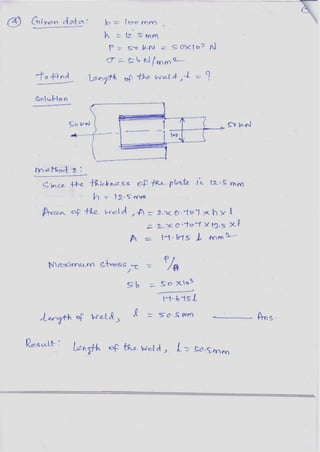 ④ Given data: b = 100 mm
h = 12.5 mm
P = 50 kN = 50x10³ N
σ = 56 N/mm²
To find Length of the weld, l = ?
Solution
50 kN
50 kN
100
Method 2:
Since the thickness of the plate is 12.5 mm
h = 12.5 mm
Area of the weld, A = 2 x 0.707 x h x l
= 2 x 0.707 x 12.5 x l
A = 17.675 l mm²
Maximum stress, τ = P/A
56 = 50 x10³
17.675 l
Length of weld, l = 50.5 mm Ans.
Result: Length of the weld, l = 50.5mm